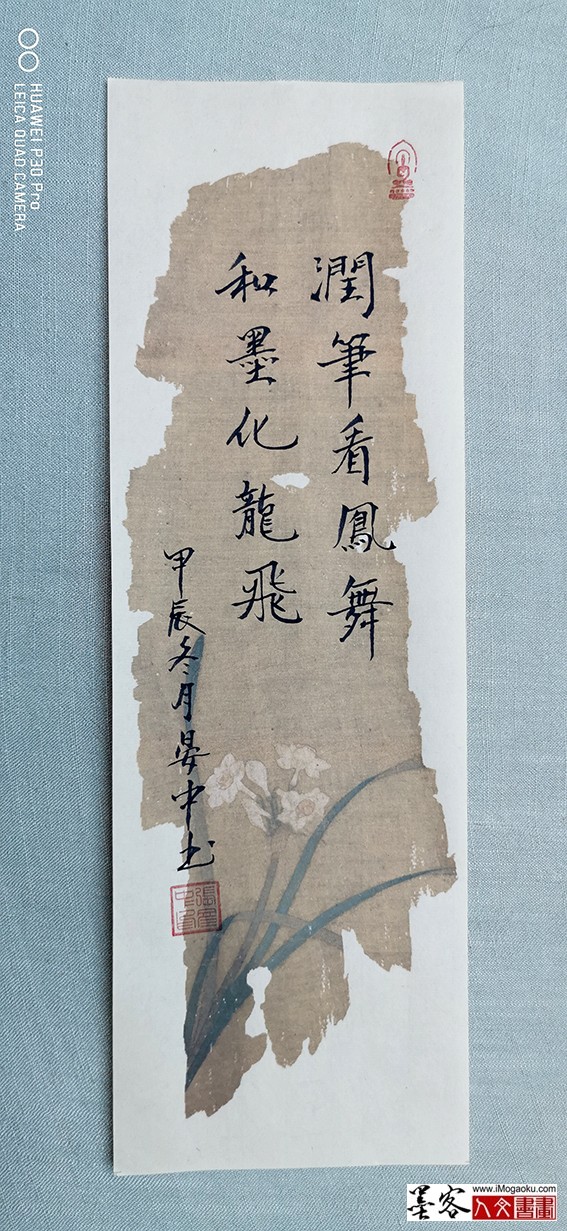 潤筆看鳳舞
和墨化龍飛
甲辰冬月晏中书
HUAWEI P30 Pro
LEICA QUAD CAMERA
墨客
www.iMogaoku.com
人文書畫